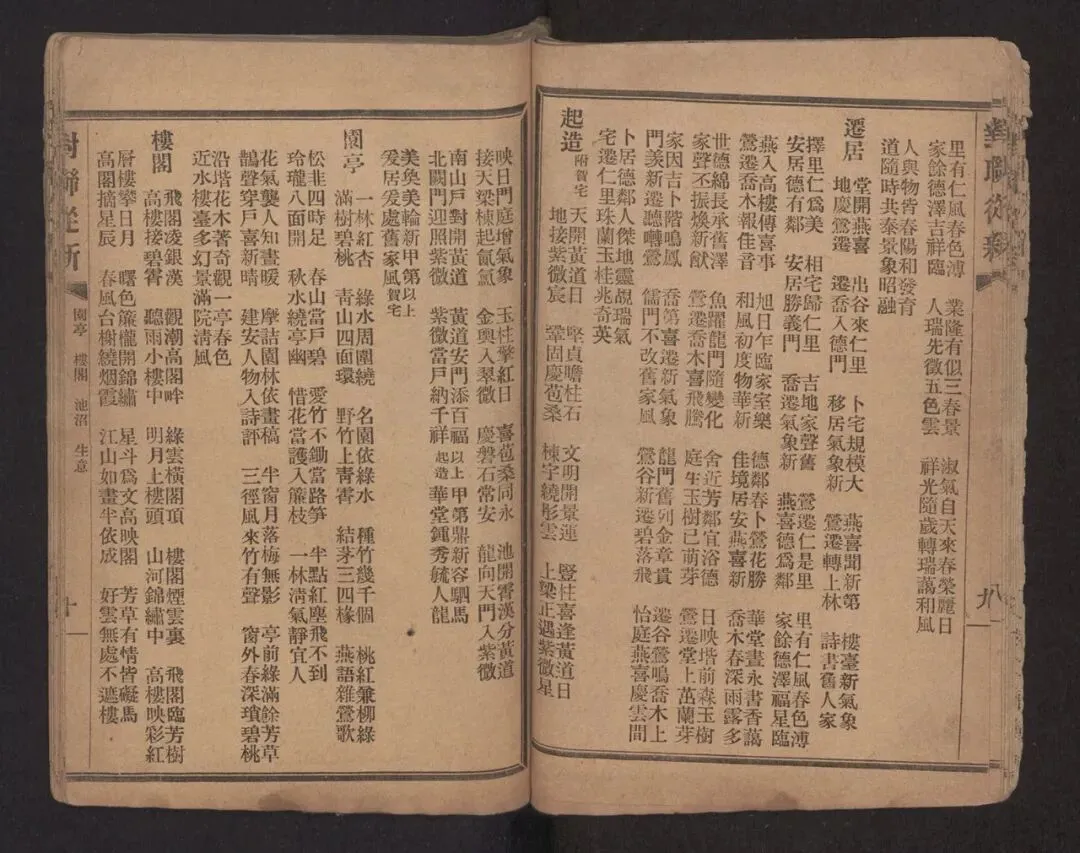 對聯從新
九
里有仁風春色溥 業隆有似三春景 淑氣自天來春榮麗日
家餘德澤吉祥臨 人瑞先徵五色雲 祥光隨歲轉瑞藹和風
人與物皆春陽和發育
道隨時共泰景象昭融
遷居 堂開燕喜 出谷來仁里 卜宅規模大 燕喜聞新第 樓臺新氣象
地慶鶯遷 遷喬入德門 移居氣象新 鶯遷轉上林 詩書舊人家
擇里仁爲美 相宅歸仁里 吉地家聲舊 鶯遷仁是里 里有仁風春色溥
安居德有鄰 安居勝義門 喬遷氣象新 燕喜德爲鄰 家餘德澤福星臨
燕入高樓傳喜事 旭日乍臨家室樂 德鄰春卜鶯花勝 華堂晝永書香藹
鶯遷喬木報佳音 和風初度物華新 佳境居安燕喜新 喬木春深雨露多
世德綿長承舊澤 魚躍龍門隨變化 舍近芳鄰宜浴德 日映堦前森玉樹
家聲丕振煥新猷 鶯遷喬木喜飛騰 庭生玉樹已萌芽 鶯遷堂上茁蘭芽
家因吉卜階鳴鳳 喬第喜遷新氣象 龍門舊列金章貴 遷谷鶯鳴喬木上
門羨新遷聽囀鶯 儒門不改舊家風 鶯谷新遷碧落飛 怡庭燕喜慶雲間
卜居德鄰人傑地靈覘瑞氣
宅遷仁里珠蘭玉桂兆奇英
起造附賀宅 天開黃道日 堅貞瞻柱石 文明開景運 豎柱喜逢黃道日
地接紫微宸 鞏固慶苞桑 棟宇繞彤雲 上梁正遇紫微星
映日門庭增氣象 玉柱擎紅日 喜苞桑同永 池開霄漢分黃道
接天梁棟起氤氳 金輿入翠微 慶磐石常安 龍向天門入紫微
南山戶對開黃道 黃道安門添百福以上 甲第鼎新容駟馬
北闕門迎照紫微 紫微當戶納千祥起造 華堂鍾秀毓人龍
美奐美輪新甲第以上
爰居爰處舊家風賀宅
園亭 一林紅杏 綠水周圍繞 名園依綠水 種竹幾千個 桃紅兼柳綠
滿樹碧桃 靑山四面環 野竹上靑霄 結茅三四椽 燕語雜鶯歌
松菲四時足 春山當戶碧 愛竹不鋤當路笋 半點紅塵飛不到
玲瓏八面開 秋水繞亭幽 惜花當護入簾枝 一林淸氣靜宜人
花氣襲人知晝暖 摩詰園林依畫稿 半窗月落梅無影 亭前綠滿餘芳草
鵲聲穿戶喜新晴 建安人物入詩評 三徑風來竹有聲 窗外春深瑣碧桃
沿堦花木著奇觀一亭春色
近水樓臺多幻景滿院淸風
樓閣 飛閣凌銀漢 觀潮高閣畔 綠雲橫閣頂 樓閣煙雲裏 飛閣臨芳樹
高樓接碧霄 聽雨小樓中 明月上樓頭 山河錦繡中 高樓映彩紅
層樓攀日月 曙色簾櫳開錦繡 星斗爲文高映閣 芳草有情皆礙馬
高閣摘星辰 春風台榭繞烟霞 江山如畫半依成 好雲無處不遮樓
對聯從新
園亭 樓閣 池沼 生意
十